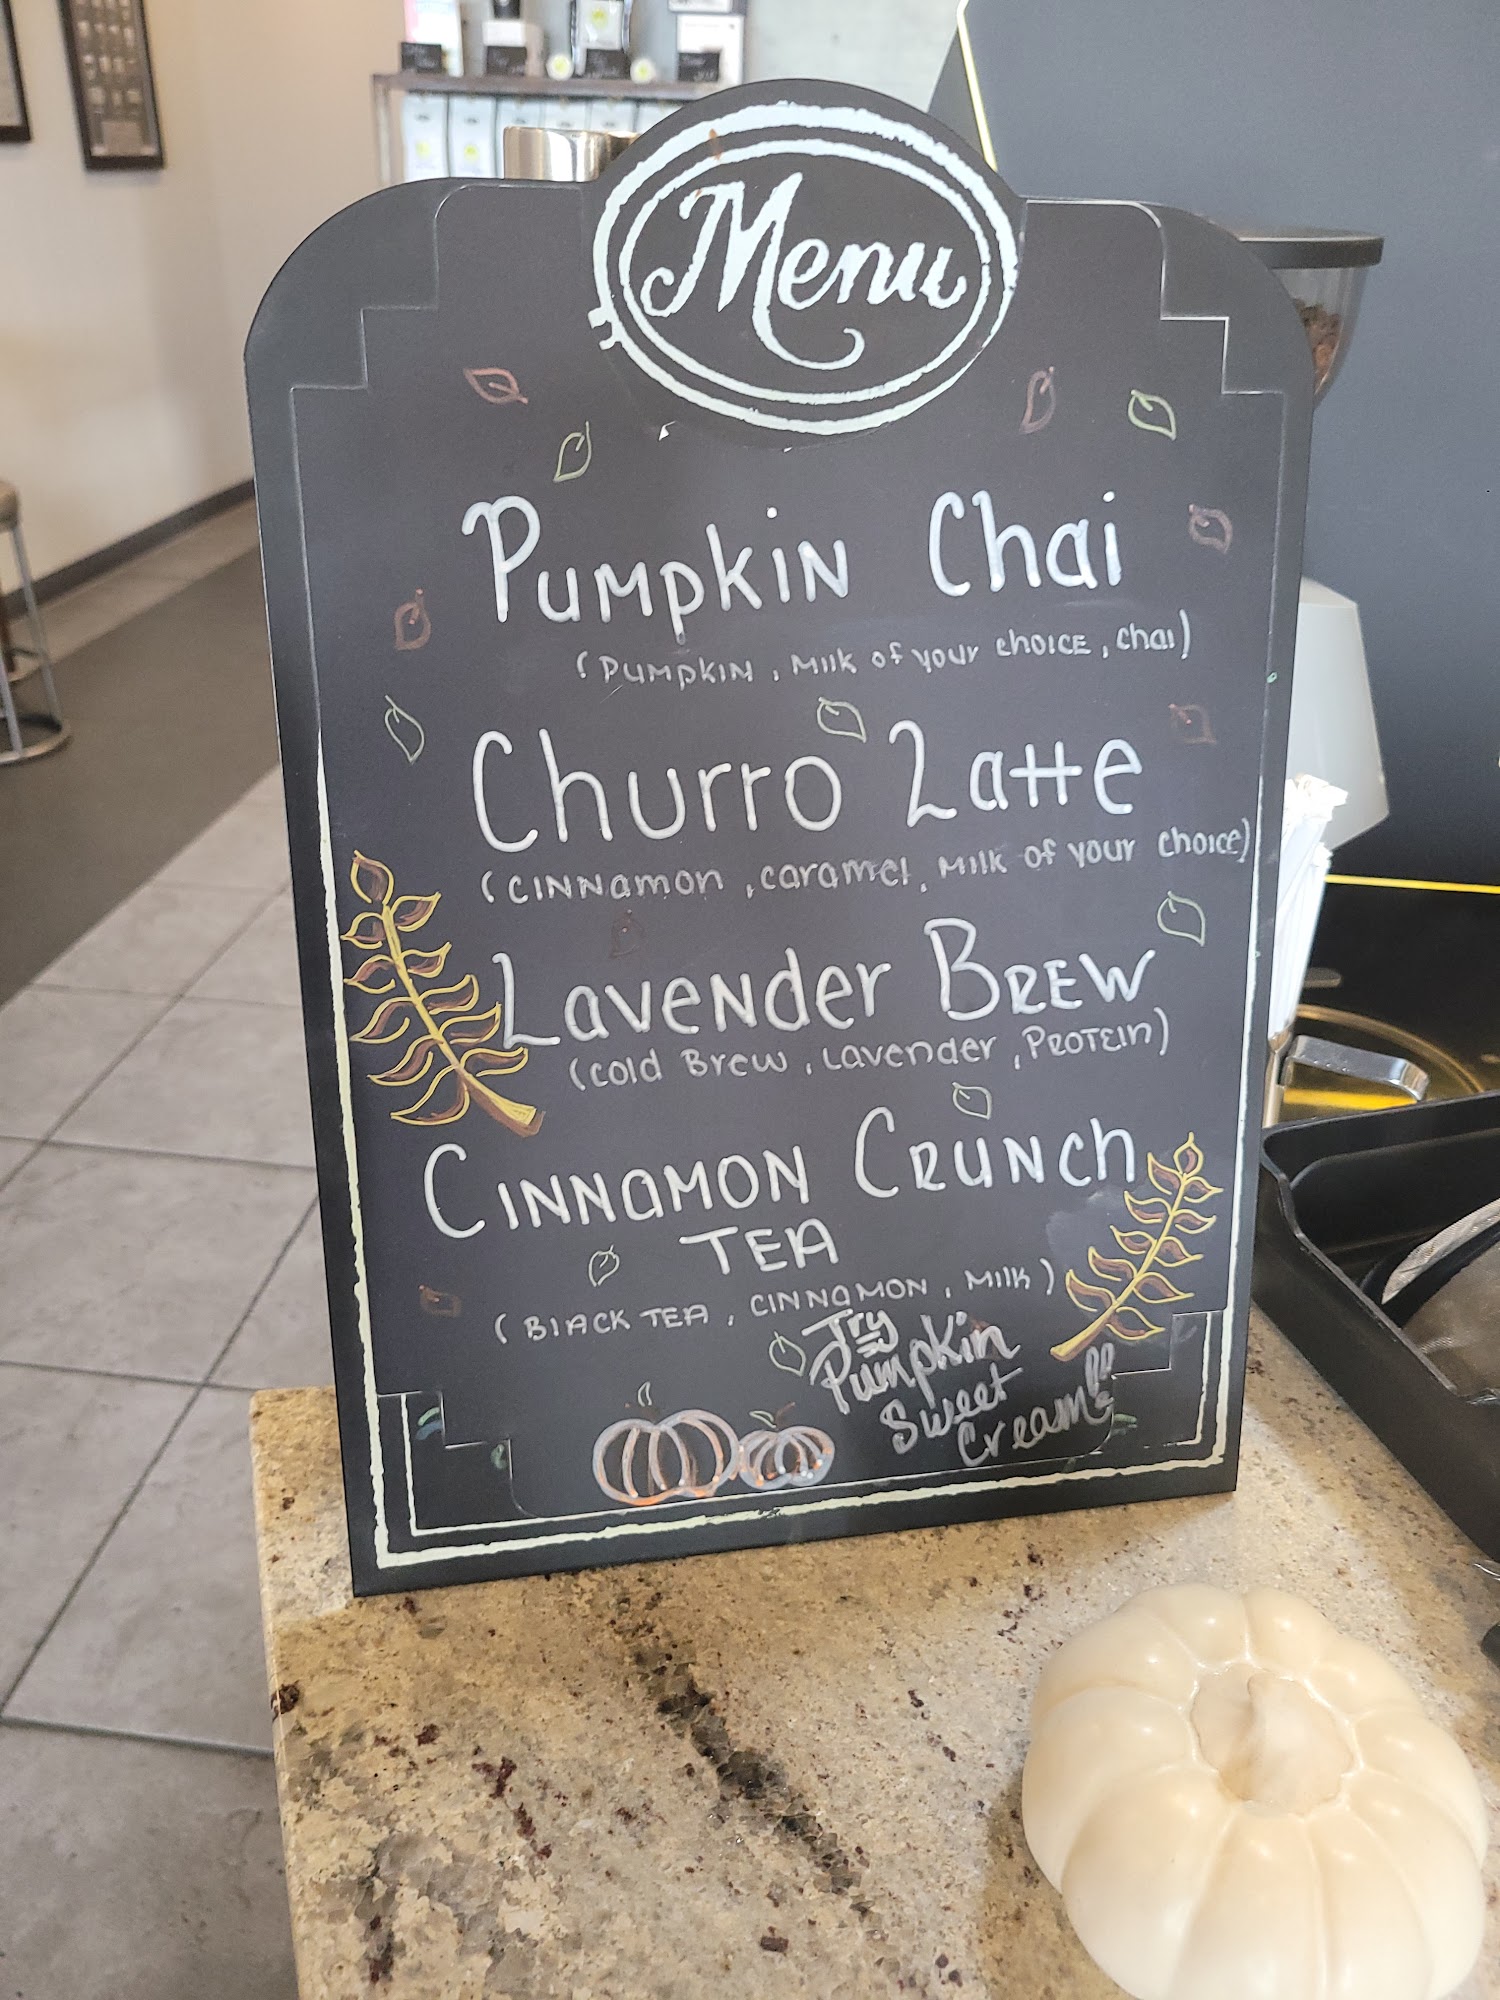 Menu
Pumpkin Chai
(Pumpkin, milk of your choice, chai)
Churro Latte
(cinnamon, caramel, milk of your choice)
Lavender Brew
(cold Brew, Lavender, Protein)
Cinnamon Crunch
TEA
(Black TEA, cinnamon, milk)
Try
Pumpkin
Sweet
Cream!!